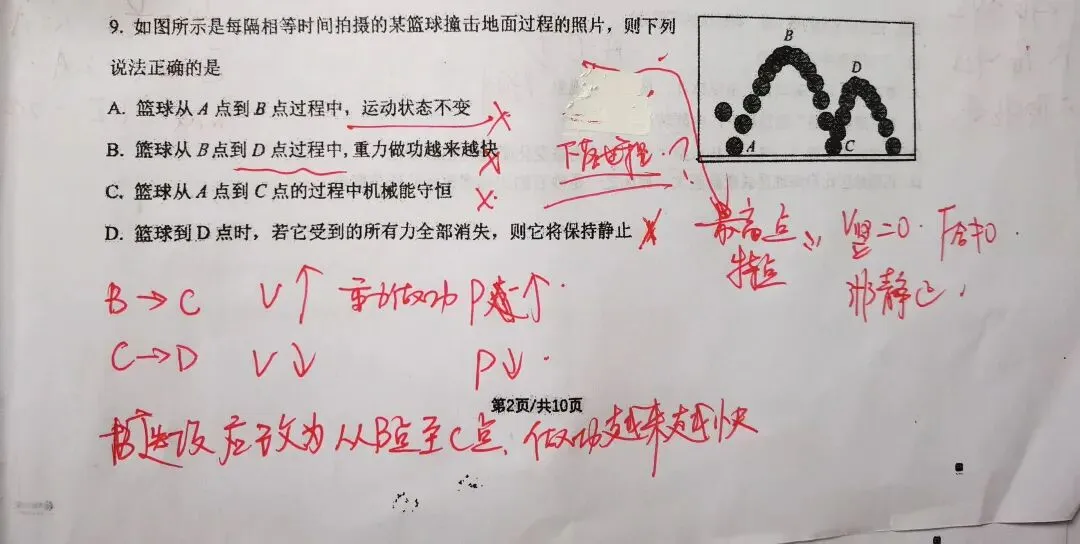 9. 如图所示是每隔相等时间拍摄的某篮球撞击地面过程的照片，则下列
说法正确的是
A. 篮球从 A 点到 B 点过程中，运动状态不变
B. 篮球从 B点到 D 点过程中，重力做功越来越快
C. 篮球从 A 点到 C 点的过程中机械能守恒
D. 篮球到 D 点时，若它受到的所有力全部消失，则它将保持静止
B
D
A
C
下落过程
最高点 V竖=0. F合≠0.
特点 非静止.
B→C V↑ 重力做功 P↑.
C→D V↓ P↓.
第2页/共10页
B选项应改为从B点至C点、做功越来越快